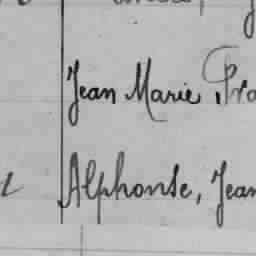 Jean Marie Fra
Alphonse, Jean